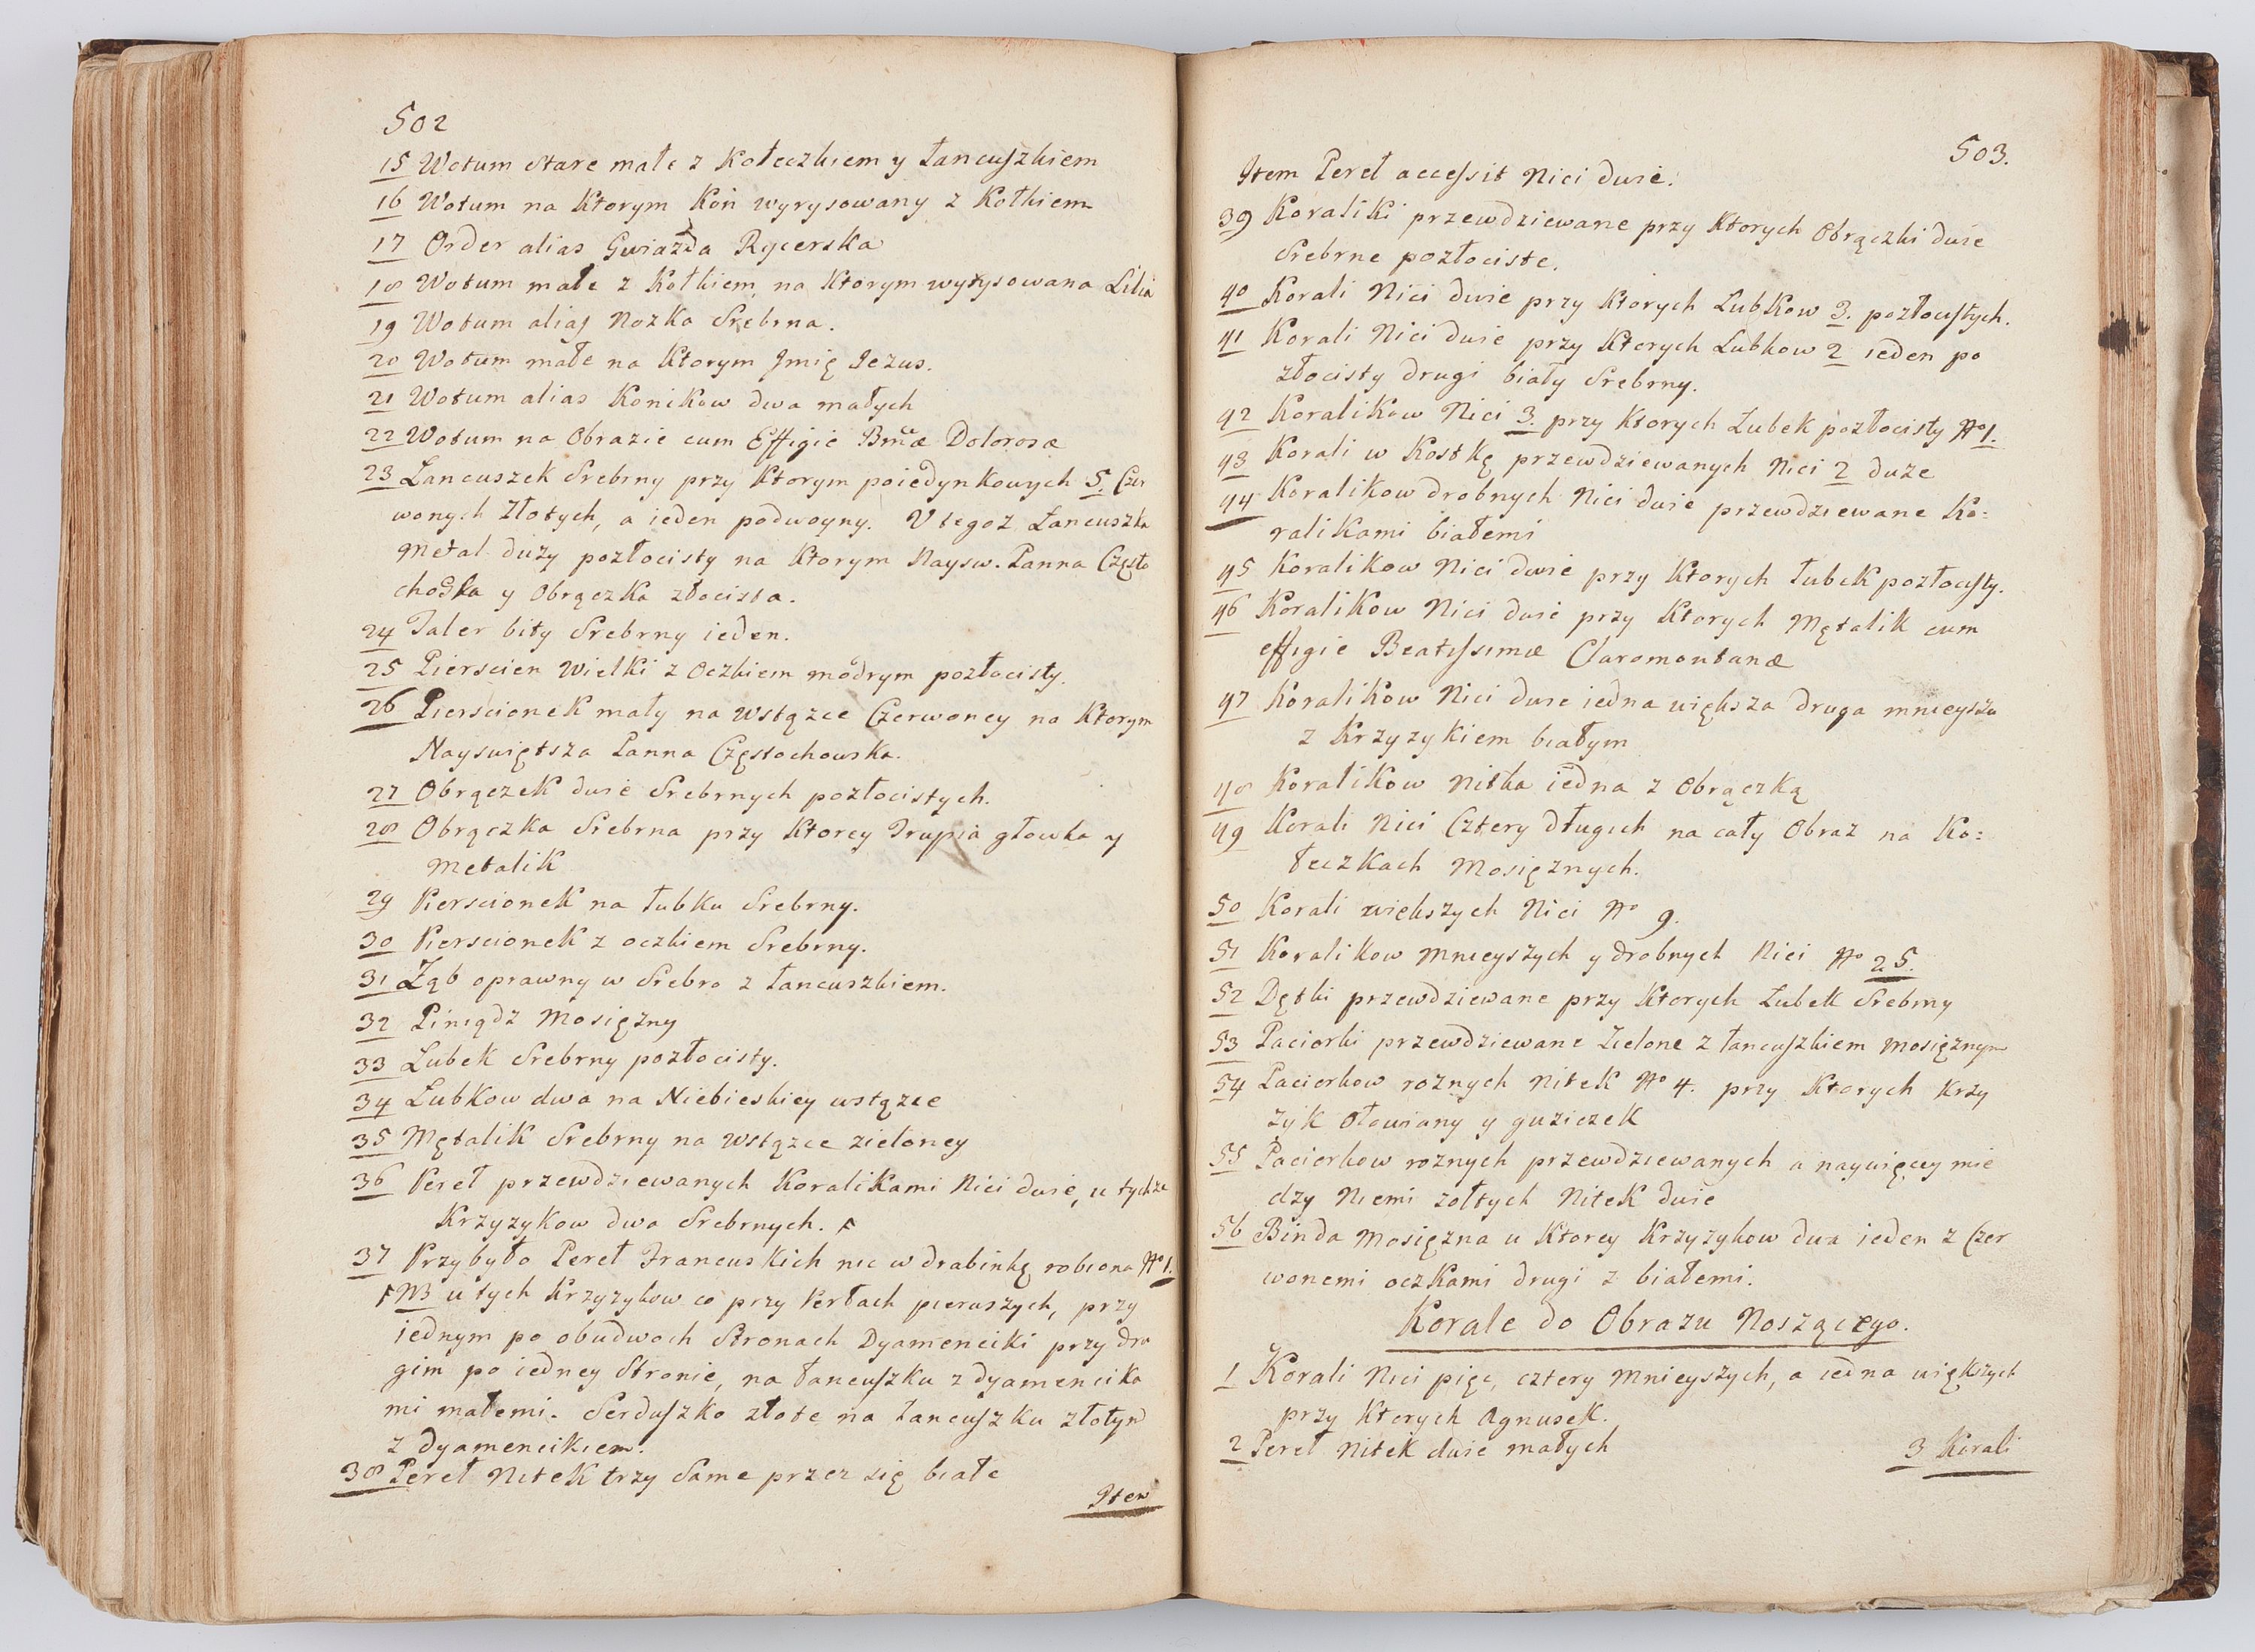 502
15 Wotum stare małe z Kołeczkiem y Łancuszkiem
16 Wotum na Ktorym Koń wyrysowany z Kołkiem
17 Order alias Gwiazda Rycerska
18 Wotum małe z Kołkiem na Ktorym wyrysowana Lilia
19 Wotum alias Nozka Srebrna.
20 Wotum małe na Ktorym Jmię Jezus.
21 Wotum alias Konikow dwa małych
22 Wotum na Obrazie cum Effigie Bmæ Dolorosæ
23 Łancuszek Srebrny przy Ktorym poiedynkowych 5. Czer
wonych Złotych, a ieden podwoyny. U tegoz Łancuszka
Metal duzy pozłocisty na Ktorym Naysw. Panna Często
choska y Obrączka złocista.
24 Taler bity Srebrny ieden.
25 Pierscien Wielki z Oczkiem modrym pozłocisty.
26 Pierscionek mały na Wstązce Czerwoney na Ktorym
Nayswiętsza Panna Częstochowska.
27 Obrączek dwie Srebrnych pozłocistych.
28 Obrączka Srebrna przy Ktorey Trupia głowka y
Metalik
29 Pierscionek na łubku Srebrny.
30 Pierscionek z oczkiem Srebrny.
31 Ząb oprawny w Srebro z łancuszkiem.
32 Piniądz Mosięzny
33 Łubek Srebrny pozłocisty.
34 Łubkow dwa na Niebieskiey wstązce
35 Mętalik Srebrny na Wstązce zieloney
36 Pereł przewdziewanych Koralikami Nici dwie, u tychze
Krzyzykow dwa Srebrnych.
37 Przybyło Pereł Francuskich nic w drabinkę robiona No 1.
NB u tych Krzyzykow co przy Perłach pierwszych, przy
iednym po obudwoch Stronach Dyamenciki przy dru
gim po iedney Stronie, na łancuszku z dyamencika
mi małemi. Serduszko złote na łancuszku złotym
z dyamencikiem.
38 Pereł Nitek trzy Same przez się białe
Item
503.
Item Pereł accessit Nici dwie.
39 Koraliki przewdziewane przy Ktorych Obrączki dwie
Srebrne pozłociste.
40 Korali Nici dwie przy Ktorych Łubkow 3. pozłocistych.
41 Korali Nici dwie przy Ktorych Łubkow 2 ieden po
złocisty drugi biały Srebrny.
42 Koralikow Nici 3. przy Ktorych Łubek pozłocisty No 1.
43 Korali w Kostkę przewdziewanych Nici 2 duze
44 Koralikow drobnych Nici dwie przewdziewane Ko=
ralikami białemi
45 Koralikow Nici dwie przy Ktorych łubek pozłocisty.
46 Koralikow Nici dwie przy Ktorych Mętalik cum
effigie Beatissimæ Claromontanæ
47 Koralikow Nici dwie iedna większa druga mnieysza
z Krzyzykiem białym
48 Koralikow Nitka iedna z Obrączką
49 Korali Nici Cztery długich na cały Obraz na Ko=
łeczkach Mosięznych.
50 Korali większych Nici No 9.
51 Koralikow Mnieyszych y drobnych Nici No 25.
52 Dętki przewdziewane przy Ktorych Łubek Srebrny
53 Paciorki przewdziewane Zielone z łancuszkiem Mosięznym
54 Paciorkow roznych Nitek No 4. przy Ktorych Krzy
zyk Ołowiany y guziczek
55 Paciorkow roznych przewdziewanych a naywięcey mie
dzy Niemi zołtych Nitek dwie
56 Binda Mosięzna u Ktorey Krzyzykow dwa ieden z Czer
wonemi oczkami drugi z białemi.
Korale do Obrazu Noszącego.
1 Korali Nici pięć, cztery Mnieyszych, a iedna większych
przy Ktorych Agnusek.
2 Pereł Nitek dwie małych
3 Korali